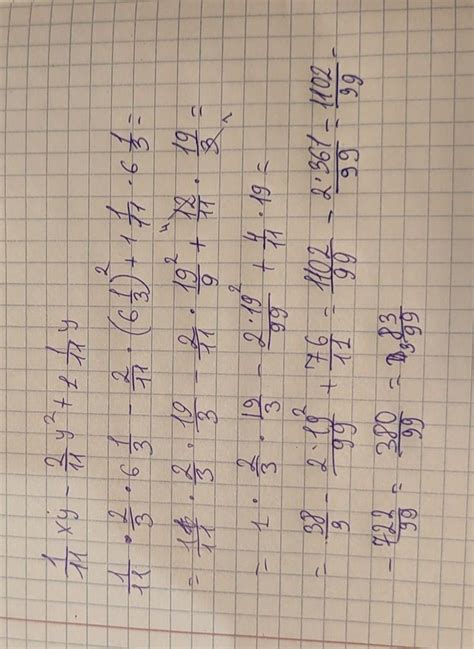 1/11 xy - 2/11 y² + 1 1/11 y
1/11 · 2/3 · 6 1/3 - 2/11 · (6 1/3)² + 1 1/11 · 6 1/3 =
= 11/11 · 2/3 · 19/3 - 2/11 · 19²/9 + 12/11 · 19/3 =
= 1 · 2/3 · 19/3 - 2·19²/99 + 4/11 · 19 =
= 38/9 - 2·19²/99 + 76/11 = 1102/99 - 2·361/99 = 1102/99 -
- 722/99 = 380/99 = 3 83/99